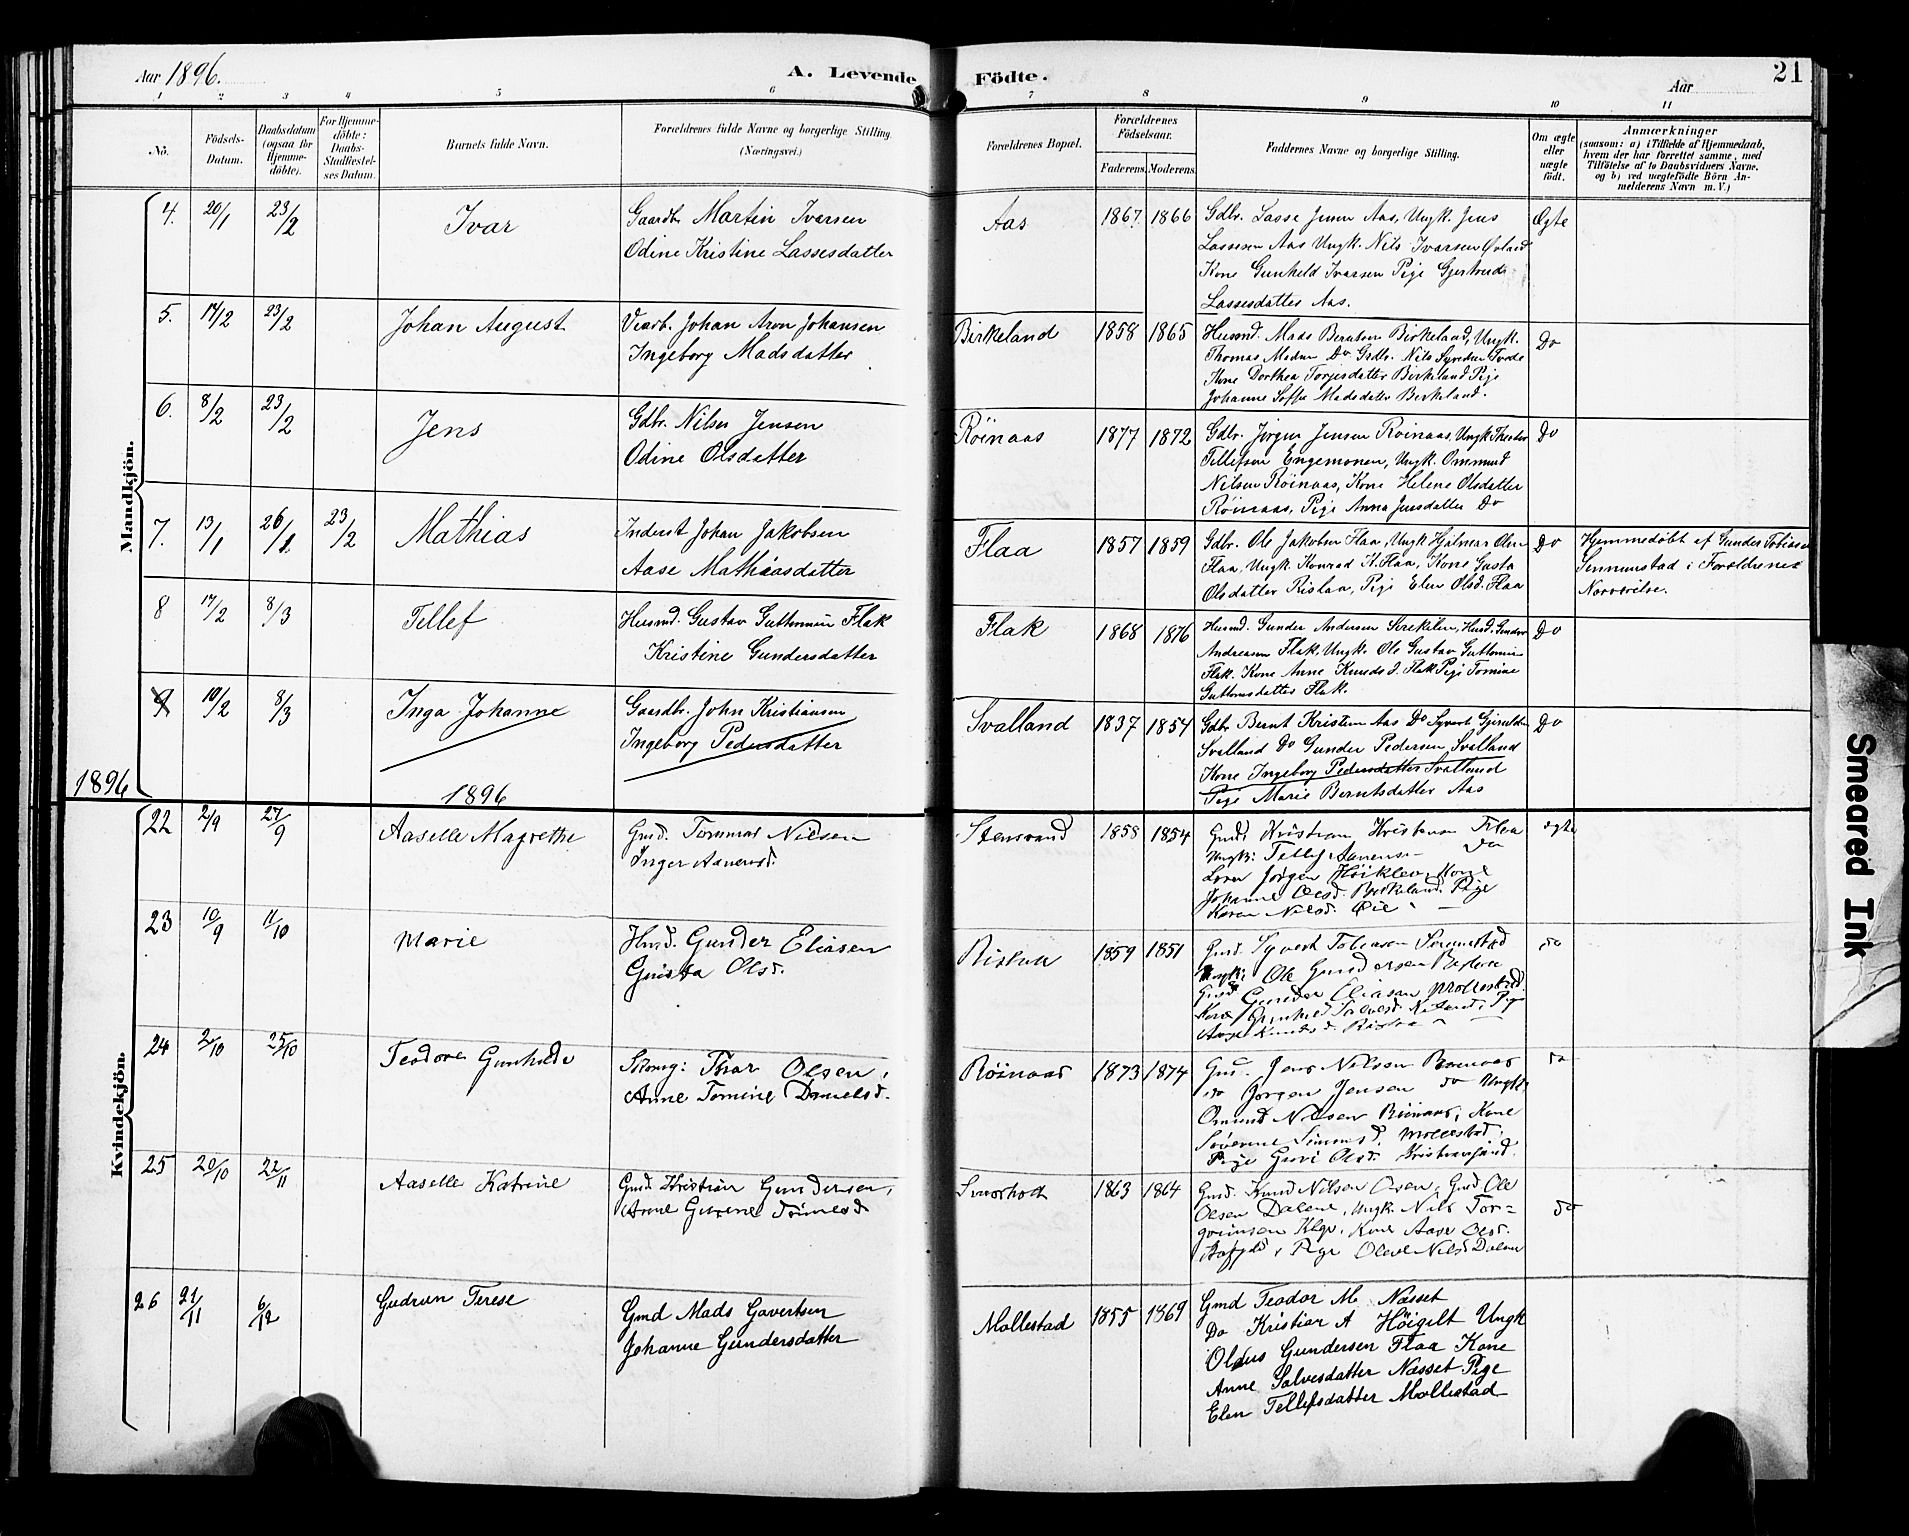 Aar 1896.
A. Levende Födte.
Aar
21
1 2 3 4 5 6 7 8 9 10 11
No.
Födsels-Datum.
Daabsdatum (ogsaa for Hjemme-döbte).
For Hjemme-döbte: Daabs-Stadfæstel-ses Datum.
Barnets fulde Navn.
Forældrenes fulde Navne og borgerlige Stilling.
(Næringsvei.)
Forældrenes Bopæl.
Forældrenes Födselsaar.
Faderens. Moderens.
Faddernes Navne og borgerlige Stilling.
Om ægte eller uægte födt.
Anmærkninger
(saasom: a) i Tilfælde af Hjemmedaab,
hvem der har forrettet samme, med
Tilföielse af to Daabsvidners Navne.
og b) ved uægtefödte Börn An-
melderens Navn m. V.)
Mandkjön.
4. 20/1 23/2 Ivar
Gaardbr. Martin Ivarsen
Odine Kristine Lassesdatter
Aas 1867 1866
Gdbr. Lasse Jensen Aas, Ungk. Jens
Lassesen Aas Ungk. Nils Ivarsen
Kone Gunhild Ivarsen Pige Gjertrud
Lassesdatter Aas.
Ægte
5. 14/2 23/2 Johan August
Johan Aron Johansen
Ingeborg Madsdatter
Birkeland 1858 1865
Husmd. Mads Berntsen Birkeland, Ungk.
Thomas Madsen Do Gdbr. Nils
Kone Dorthea Torjesdatter Birkeland Pige
Johanne Sofie Madsdatter Birkeland.
Do
6. 8/2 23/2 Jens
Gdbr. Nils Jensen
Odine Olsdatter
Röinaas 1877 1872
Gdbr. Jörgen Jensen Röinaas, Ungk
Tellefsen Engemonen, Ungk. Ommund
Nilsen Röinaas, Kone Helene Olsdatter
Röinaas, Pige Anna Jensdatter Do
Do
7. 13/1 26/1 23/2 Mathias
Inderst Johan Jakobsen
Aase Mathiasdatter
Flaa 1857 1859
Gdbr. Ole Jakobsen Flaa, Ungk Hjalmar Olsen
Flaa, Ungk. Konrad K. Flaa, Kone Gusta
Olsdatter Rislaa, Pige Elen Olsd. Flaa
Do
Hjemmedöbt af Gunder Tobiasen
i Forældrenes
Nærværelse.
8 17/2 8/3 Tellef
Husmd. Gustav Guttormsen Flak
Kristine Gundersdatter
Flak 1868 1876
Husmd. Gunder Andersen Husmd. Gunder
Andreasen Flak, Ungk. Ole Gustav Guttormsen
Flak. Kone Anne Knudsd. Flak Pige Tomine
Guttormsdatter Flak.
Do
9 10/2 8/3 Inga Johanne
Gaardbr. John Kristiansen
Ingeborg Pedersdatter
Svalland 1837 1854
Gdbr Bernt Kristensen Aas Do Syvert
Svalland Do Gunder Pedersen, Svalland
Kone Ingeborg Pedersdatter Svalland
Pige Marie Berntsdatter Aas
Do
1896 1896
Kvindekjön.
22 2/9 27/9 Aaselle Magrethe
Gmd. Tommas Nilsen
Inger Aanensd.
Stensvand 1858 1854
Gmd. Kristian Kristensen Flaa
Ungk: Tellef Aanensen Do
Jörgen Höiklev, Kone
Johanne Olsd. Birkeland. Pige
Karen Nilsd.
ægte
23 10/9 11/10 Marie
Husd. Gunder Eliasen
Gusta Olsd.
Rislaa 1859 1851
Gmd. Syvert Tobiasen
Ungk: Ole Gundersen Rislaa
Gmd Gunder Eliasen Mollestad.
Kone Gunhild Pige
Aasel Knudsd. Rislaa
do
24 2/10 25/10 Teodora Gunhilde
Olsen,
Anne Tomine Danielsd.
Röinaas 1873 1874
Gmd. Jens Nilsen Röinaas
do Jörgen Jensen do Ungk.
Omund Nilsen Röinaas, Kone
Severine Mollestad.
Pige Guri Olsd. Kristiansand.
do
25 20/10 22/11 Aaselle Katrine
Gmd. Kristian Gundersen,
Anne Gurine
1863 1864
Gmd. Knud Nilsen Gmd Ole
Olsen Dalene, Ungk. Nils Tor=
grimsen Kone Aase Olsd.
Pige Olene Nilsd Dalene
do
26 21/11 6/12 Gudrun Terese
Gmd Mads Govertsen
Johanne Gundersdatter
Mollestad 1855 1869
Gmd Teodor M. Næsset
Do Kristian A Höigilt Ungk
Olaus Gundersen Flaa Kone
Anne Salvesdatter Næsset Pige
Elen Tellefsdatter Mollestad
Smeared Ink